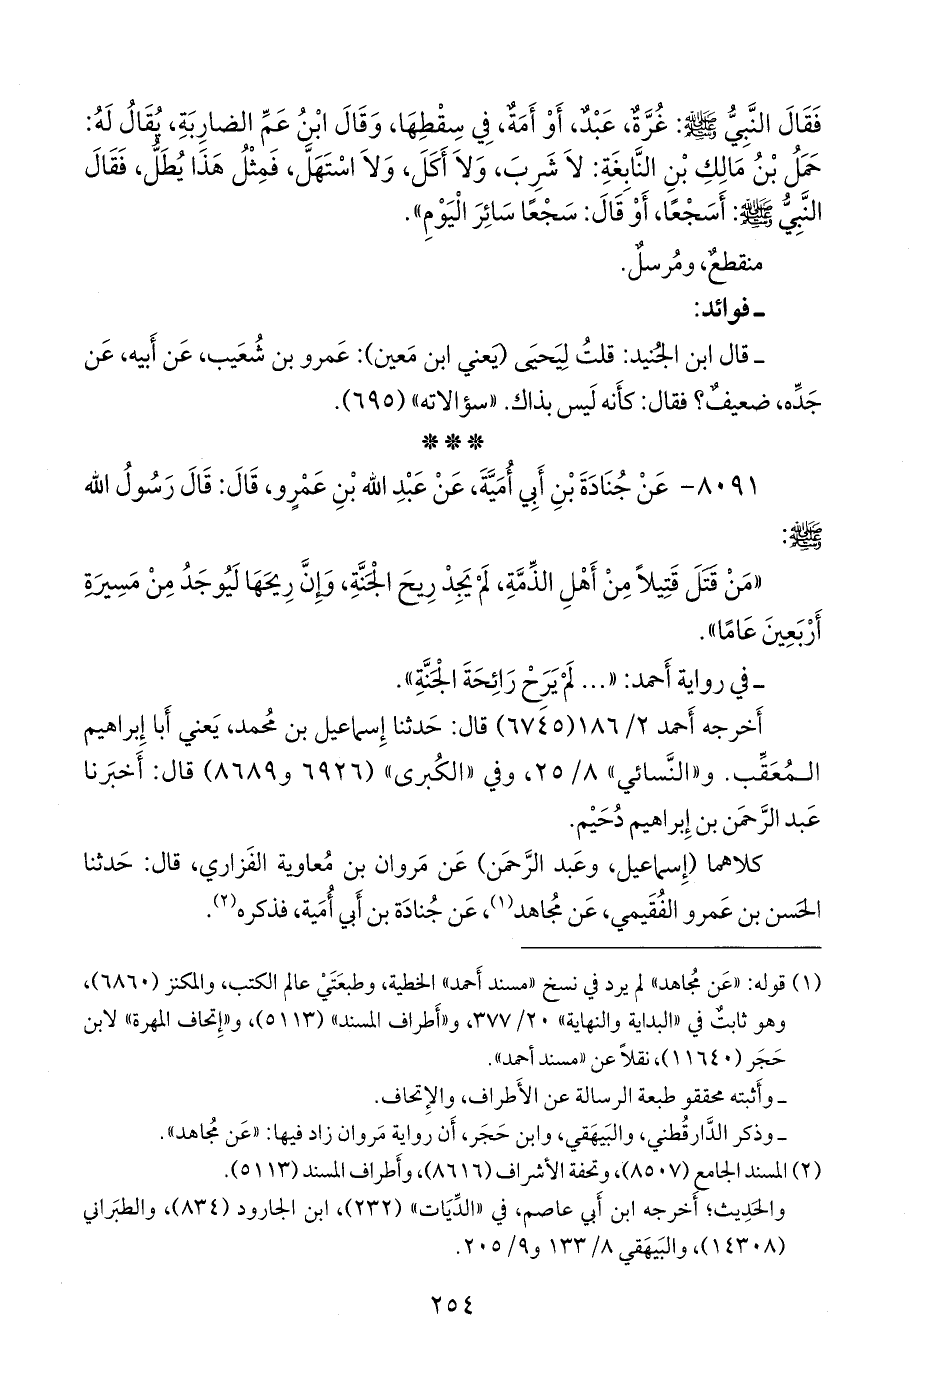 فَقَالَ النَّبِيُّ ﷺ: غُرَّةٌ، عَبْدٌ، أَوْ أَمَةٌ، فِي سِقْطِهَا، وَقَالَ ابْنُ عَمِّ الضارِبَةِ، يُقَالُ لَهُ:
حَمَلُ بْنُ مَالِكِ بْنِ النَّابِغَةِ: لاَ شَرِبَ، وَلاَ أَكَلَ، وَلاَ اسْتَهَلَّ، فَمِثْلُ هَذَا يُطَلُّ، فَقَالَ
النَّبِيُّ ﷺ: أَسَجْعًا، أَوْ قَالَ: سَجْعًا سَائِرَ الْيَوْمِ».
منقطعٌ، ومُرسلٌ.
ـ فوائد:
ـ قال ابن الجُنيد: قلتُ لِيَحيَى (يَعني ابن مَعين): عَمرو بن شُعَيب، عَن أَبيه، عَن
جَدِّه، ضعيفٌ؟ فقال: كأَنه لَيس بذاك. «سؤالاته» (٦٩٥).
***
٨٠٩١- عَنْ جُنَادَةَ بْنِ أَبِي أُمَيَّةَ، عَنْ عَبْدِ الله بْنِ عَمْرٍو، قَالَ: قَالَ رَسُولُ الله
ﷺ:
«مَنْ قَتَلَ قَتِيلاً مِنْ أَهْلِ الذِّمَّةِ، لَمْ يَجِدْ رِيحَ الْجَنَّةِ، وَإِنَّ رِيحَهَا لَيُوجَدُ مِنْ مَسِيرَةِ
أَرْبَعِينَ عَامًا».
ـ في رواية أَحمد: «... لَمْ يَرَحْ رَائِحَةَ الْجَنَّةِ».
أَخرجه أَحمد ٢/ ١٨٦(٦٧٤٥) قال: حَدثنا إِسماعيل بن مُحمد، يَعني أَبا إِبراهيم
الـمُعَقِّب. و«النَّسائي» ٨/ ٢٥، وفي «الكُبرى» (٦٩٢٦ و٨٦٨٩) قال: أَخبَرنا
عَبد الرَّحمَن بن إِبراهيم دُحَيْم.
كلاهما (إِسماعيل، وعَبد الرَّحمَن) عَن مَروان بن مُعاوية الفَزاري، قال: حَدثنا
الحَسن بن عَمرو الفُقَيمي، عَن مُجاهد(١)، عَن جُنادَة بن أَبي أُمَية، فذكره(٢).
(١) قوله: «عَن مُجاهد» لم يرد في نسخ «مسند أَحمد» الخطية، وطبعَتَيْ عالم الكتب، والمكنز (٦٨٦٠)،
وهو ثابتٌ في «البداية والنهاية» ٢٠/ ٣٧٧، و«أَطراف المسند» (٥١١٣)، و«إِتحاف المهرة» لابن
حَجَر (١١٦٤٠)، نقلاً عن «مسند أحمد».
ـ وأَثبته محققو طبعة الرسالة عن الأَطراف، والإِتحاف.
ـ وذكر الدَّارقُطني، والبَيهَقي، وابن حَجَر، أَن رواية مَروان زاد فيها: «عَن مُجاهد».
(٢) المسند الجامع (٨٥٠٧)، وتحفة الأَشراف (٨٦١٦)، وأَطراف المسند (٥١١٣).
والحَدِيث؛ أَخرجه ابن أَبي عاصم، في «الدِّيَات» (٢٣٢)، ابن الجارود (٨٣٤)، والطبَراني
(١٤٣٠٨)، والبَيهَقي ٨/ ١٣٣ و٩/ ٢٠٥.
٢٥٤